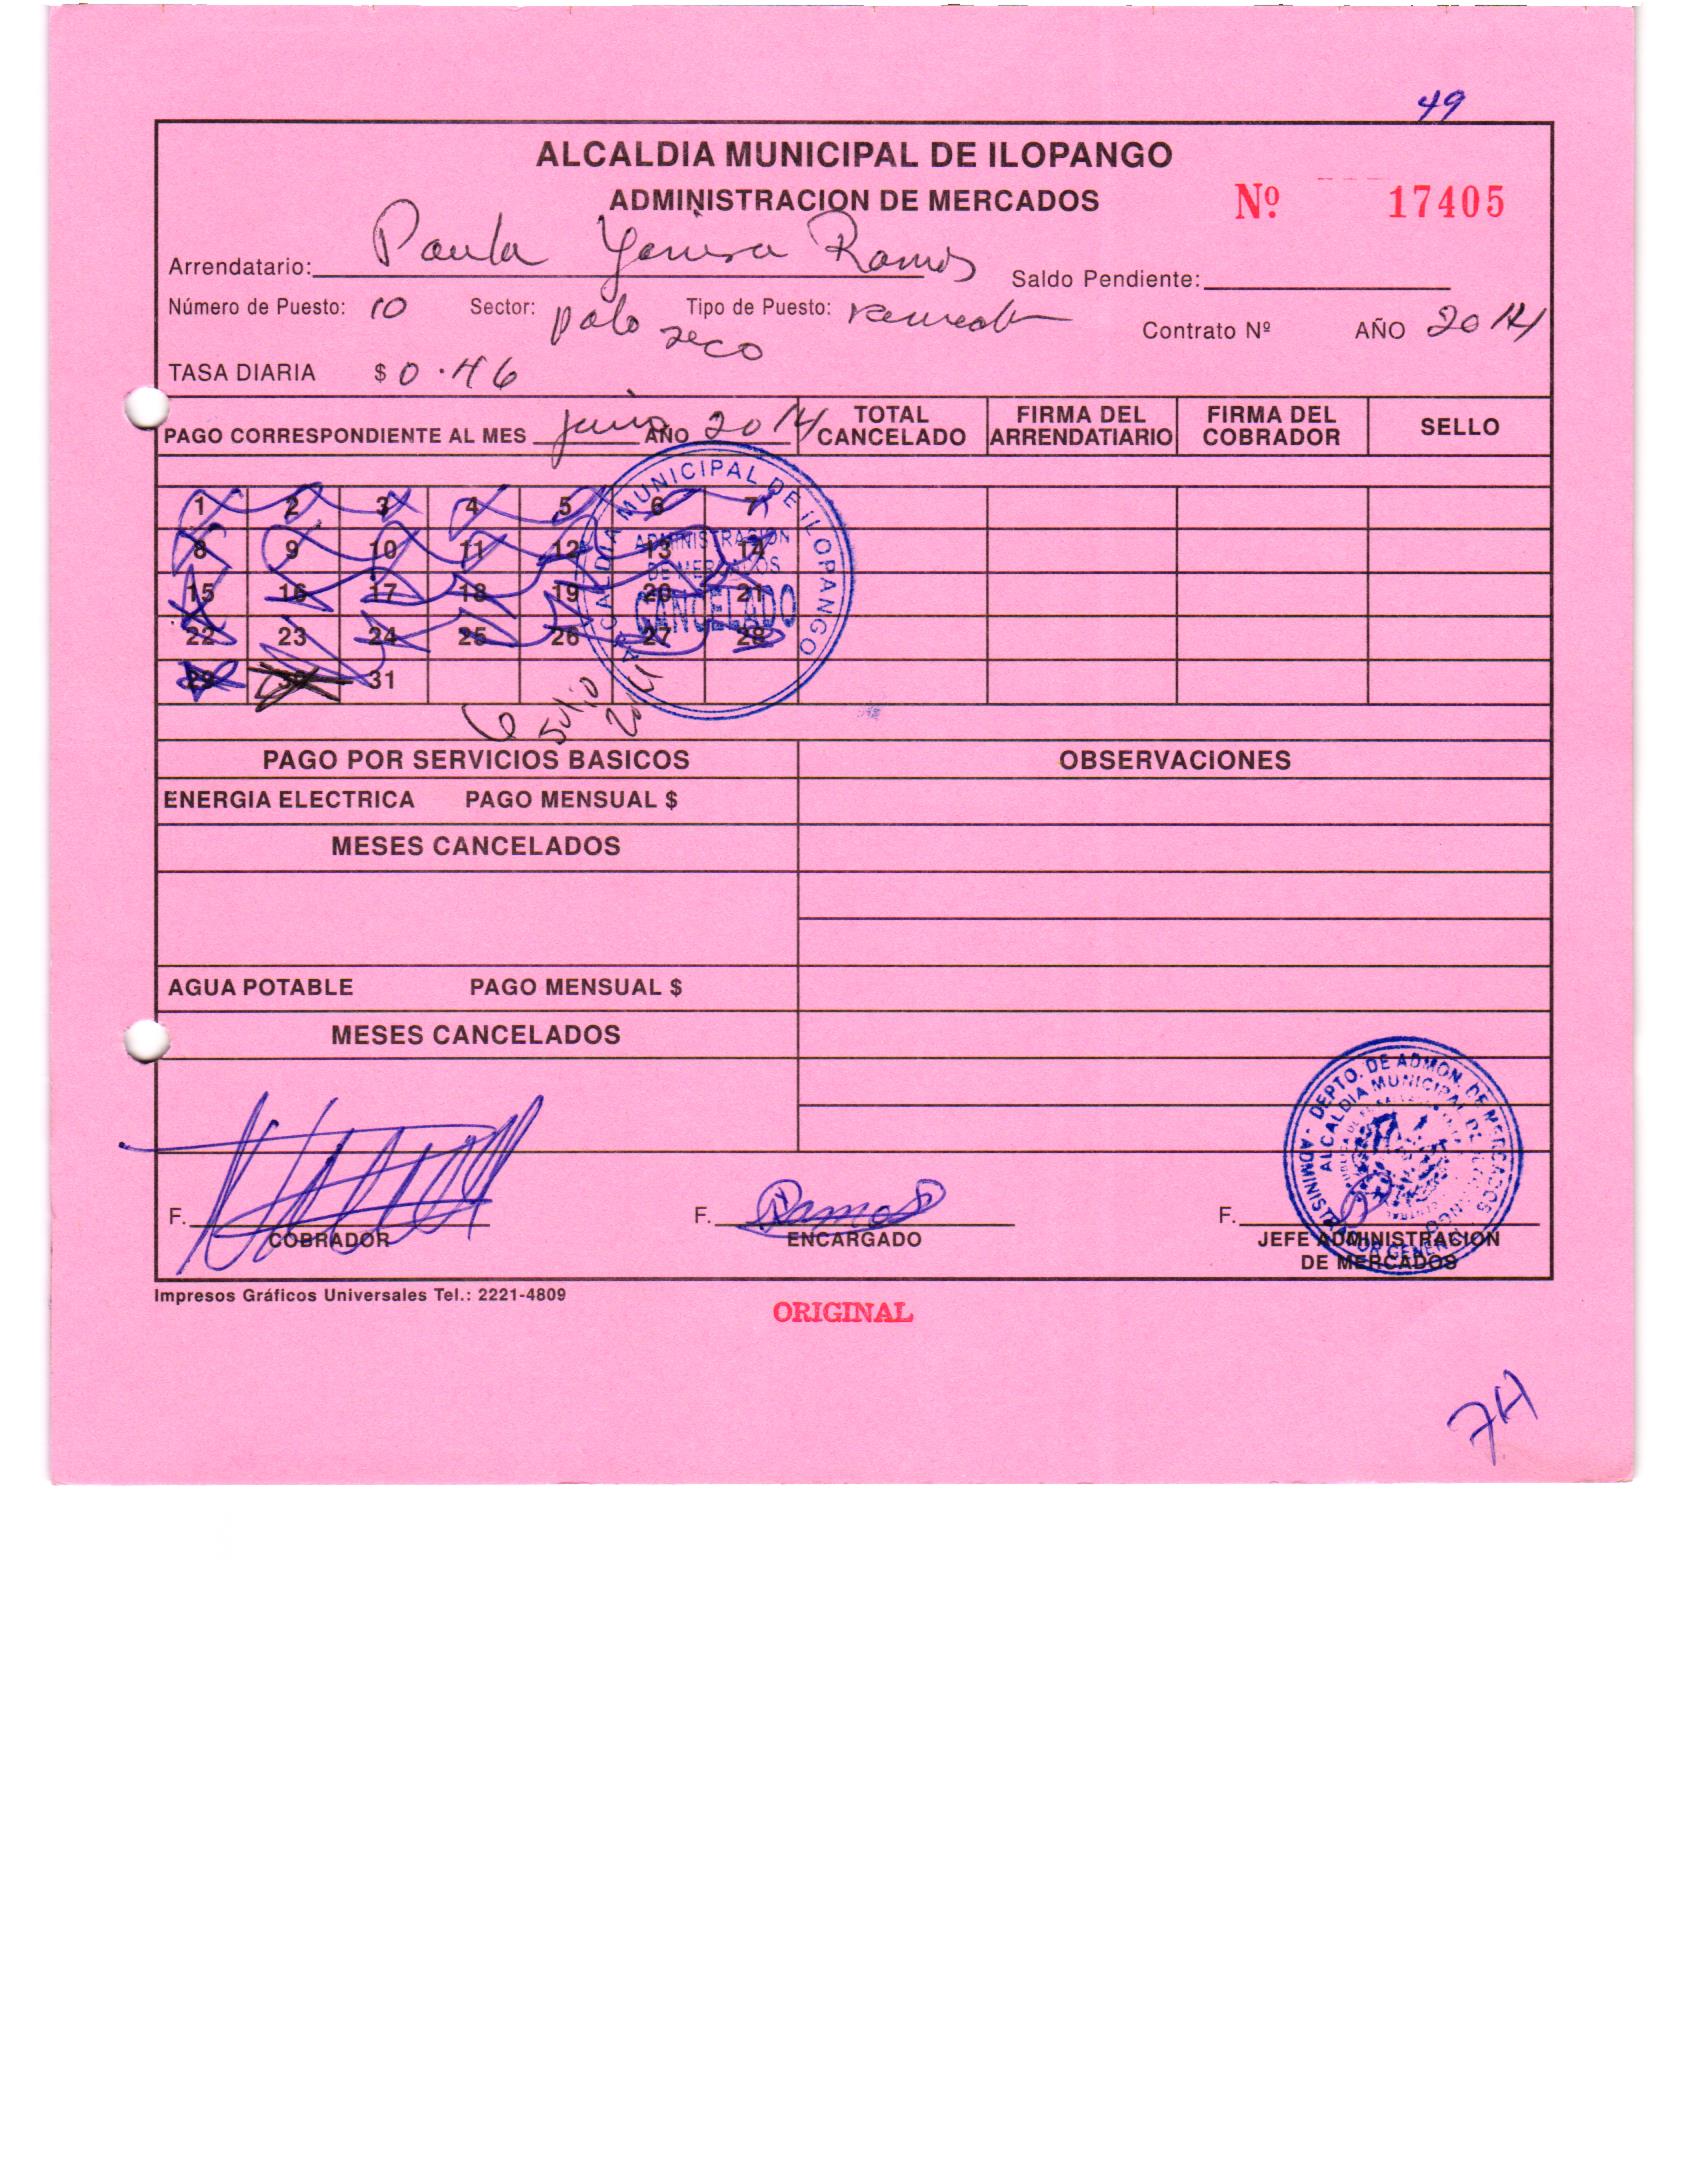 49
ALCALDIA MUNICIPAL DE ILOPANGO
ADMINISTRACION DE MERCADOS
Nº 17405
Arrendatario: Paula Ramos
Saldo Pendiente:
Número de Puesto: 10 Sector: palo seco Tipo de Puesto:
Contrato Nº AÑO 2014
TASA DIARIA $ 0.46
PAGO CORRESPONDIENTE AL MES junio AÑO 2014
TOTAL CANCELADO
FIRMA DEL ARRENDATIARIO
FIRMA DEL COBRADOR
SELLO
1 2 3 4 5 6 7
8 9 10 11 12 13 14
15 16 17 18 19 20 21
22 23 24 25 26 27 28
29 30 31
ALCALDIA MUNICIPAL DE ILOPANGO
ADMINISTRACION
DE MERCADOS
CANCELADO
6 Julio 2014
PAGO POR SERVICIOS BASICOS
OBSERVACIONES
ENERGIA ELECTRICA PAGO MENSUAL $
MESES CANCELADOS
AGUA POTABLE PAGO MENSUAL $
MESES CANCELADOS
DEPTO. DE ADMON. DE MERCADOS
ALCALDIA MUNICIPAL DE ILOPANGO
ADMINISTRADOR GENERAL
F.
COBRADOR
F. Ramos
ENCARGADO
F.
JEFE ADMINISTRACION
DE MERCADOS
Impresos Gráficos Universales Tel.: 2221-4809
ORIGINAL
74